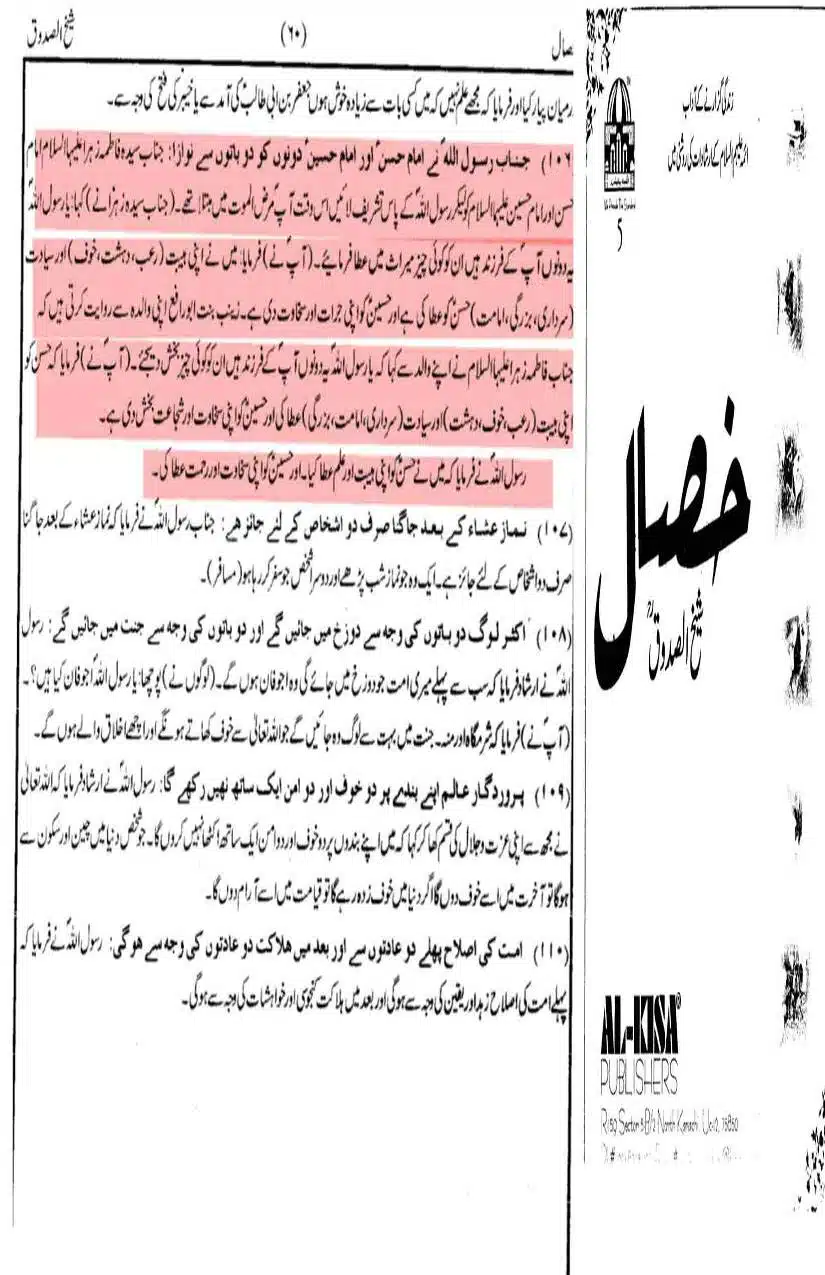 شیخ الصدوق
(۶۰)
صال
رمیان پیار کیا اور فرمایا کہ مجھے علم نہیں کہ میں کس بات سے زیادہ خوش ہوں جعفر بن ابی طالبؑ کی آمد سے یا خیبر کی فتح کی وجہ سے۔
(۱۰۶) جناب رسول اللهؐ نے امام حسنؑ اور امام حسینؑ دونوں کو دو باتوں سے نوازا: جناب سیدہ فاطمہ زہرا علیہا السلام امام
حسن اور امام حسین علیہما السلام کو لیکر رسول اللہؐ کے پاس تشریف لائیں اس وقت آپؐ مرض الموت میں مبتلا تھے۔ (جناب سیدہ زہرا نے) کہا: یا رسول اللہؐ
یہ دونوں آپؐ کے فرزند ہیں ان کو کوئی چیز میراث میں عطا فرمائیے۔ (آپؐ نے) فرمایا: میں نے اپنی ہیبت (رعب، دہشت، خوف) اور سیادت
(سرداری، بزرگی، امامت) حسنؑ کو عطا کی ہے اور حسینؑ کو اپنی جرات اور سخاوت دی ہے۔ زینب بنت ابو رافع اپنی والدہ سے روایت کرتی ہیں کہ
جناب فاطمہ زہرا علیہا السلام نے اپنے والد سے کہا کہ یا رسول اللہؐ یہ دونوں آپؐ کے فرزند ہیں ان کو کوئی چیز بخش دیجئے۔ (آپؐ نے) فرمایا کہ حسنؑ کو
اپنی ہیبت (رعب، خوف، دہشت) اور سیادت (سرداری، امامت، بزرگی) عطا کی اور حسینؑ کو اپنی سخاوت اور شجاعت بخش دی ہے۔
رسول اللہؐ نے فرمایا کہ میں نے حسنؑ کو اپنی ہیبت اور علم عطا کیا۔ اور حسینؑ کو اپنی سخاوت اور رحمت عطا کی۔
(۱۰۷) نماز عشاء کے بعد جاگنا صرف دو اشخاص کے لئے جائز ہے: جناب رسول اللہؐ نے فرمایا کہ نماز عشاء کے بعد جاگنا
صرف دو اشخاص کے لئے جائز ہے۔ ایک وہ جو نماز شب پڑھے اور دوسرا شخص جو سفر کر رہا ہو (مسافر)۔
(۱۰۸) اکثر لوگ دو باتوں کی وجہ سے دوزخ میں جائیں گے اور دو باتوں کی وجہ سے جنت میں جائیں گے: رسول
اللہؐ نے ارشاد فرمایا کہ سب سے پہلے میری امت جو دوزخ میں جائے گی وہ اجوفان ہوں گے۔ (لوگوں نے) پوچھا: یا رسول اللہؐ اجوفان کیا ہیں؟۔
(آپؐ نے) فرمایا کہ شرمگاہ اور منہ۔ جنت میں بہت سے لوگ وہ جائیں گے جو اللہ تعالیٰ سے خوف کھاتے ہونگے اور اچھے اخلاق والے ہوں گے۔
(۱۰۹) پروردگار عالم اپنے بندے پر دو خوف اور دو امن ایک ساتھ نہیں رکھے گا: رسول اللہؐ نے ارشاد فرمایا کہ اللہ تعالیٰ
نے مجھ سے اپنی عزت و جلال کی قسم کھا کر کہا کہ میں اپنے بندوں پر دو خوف اور دو امن ایک ساتھ اکٹھا نہیں کروں گا۔ جو شخص دنیا میں چین اور سکون سے
ہوگا تو آخرت میں اسے خوف دوں گا اگر دنیا میں خوف زدہ رہے گا تو قیامت میں اسے آرام دوں گا۔
(۱۱۰) امت کی اصلاح پہلے دو عادتوں سے اور بعد میں ہلاکت دو عادتوں کی وجہ سے ہوگی: رسول اللہؐ نے فرمایا کہ
پہلے امت کی اصلاح زہد اور یقین کی وجہ سے ہوگی اور بعد میں ہلاکت کنجوسی اور خواہشات کی وجہ سے ہوگی۔
زندگی گزارنے کے آداب
ائمہ علیہم السلام کے ارشادات کی روشنی میں
5
خصال
شیخ الصدوقؒ
AL-KISA®
PUBLISHERS
R159 Sector 5 B/2 North Karachi